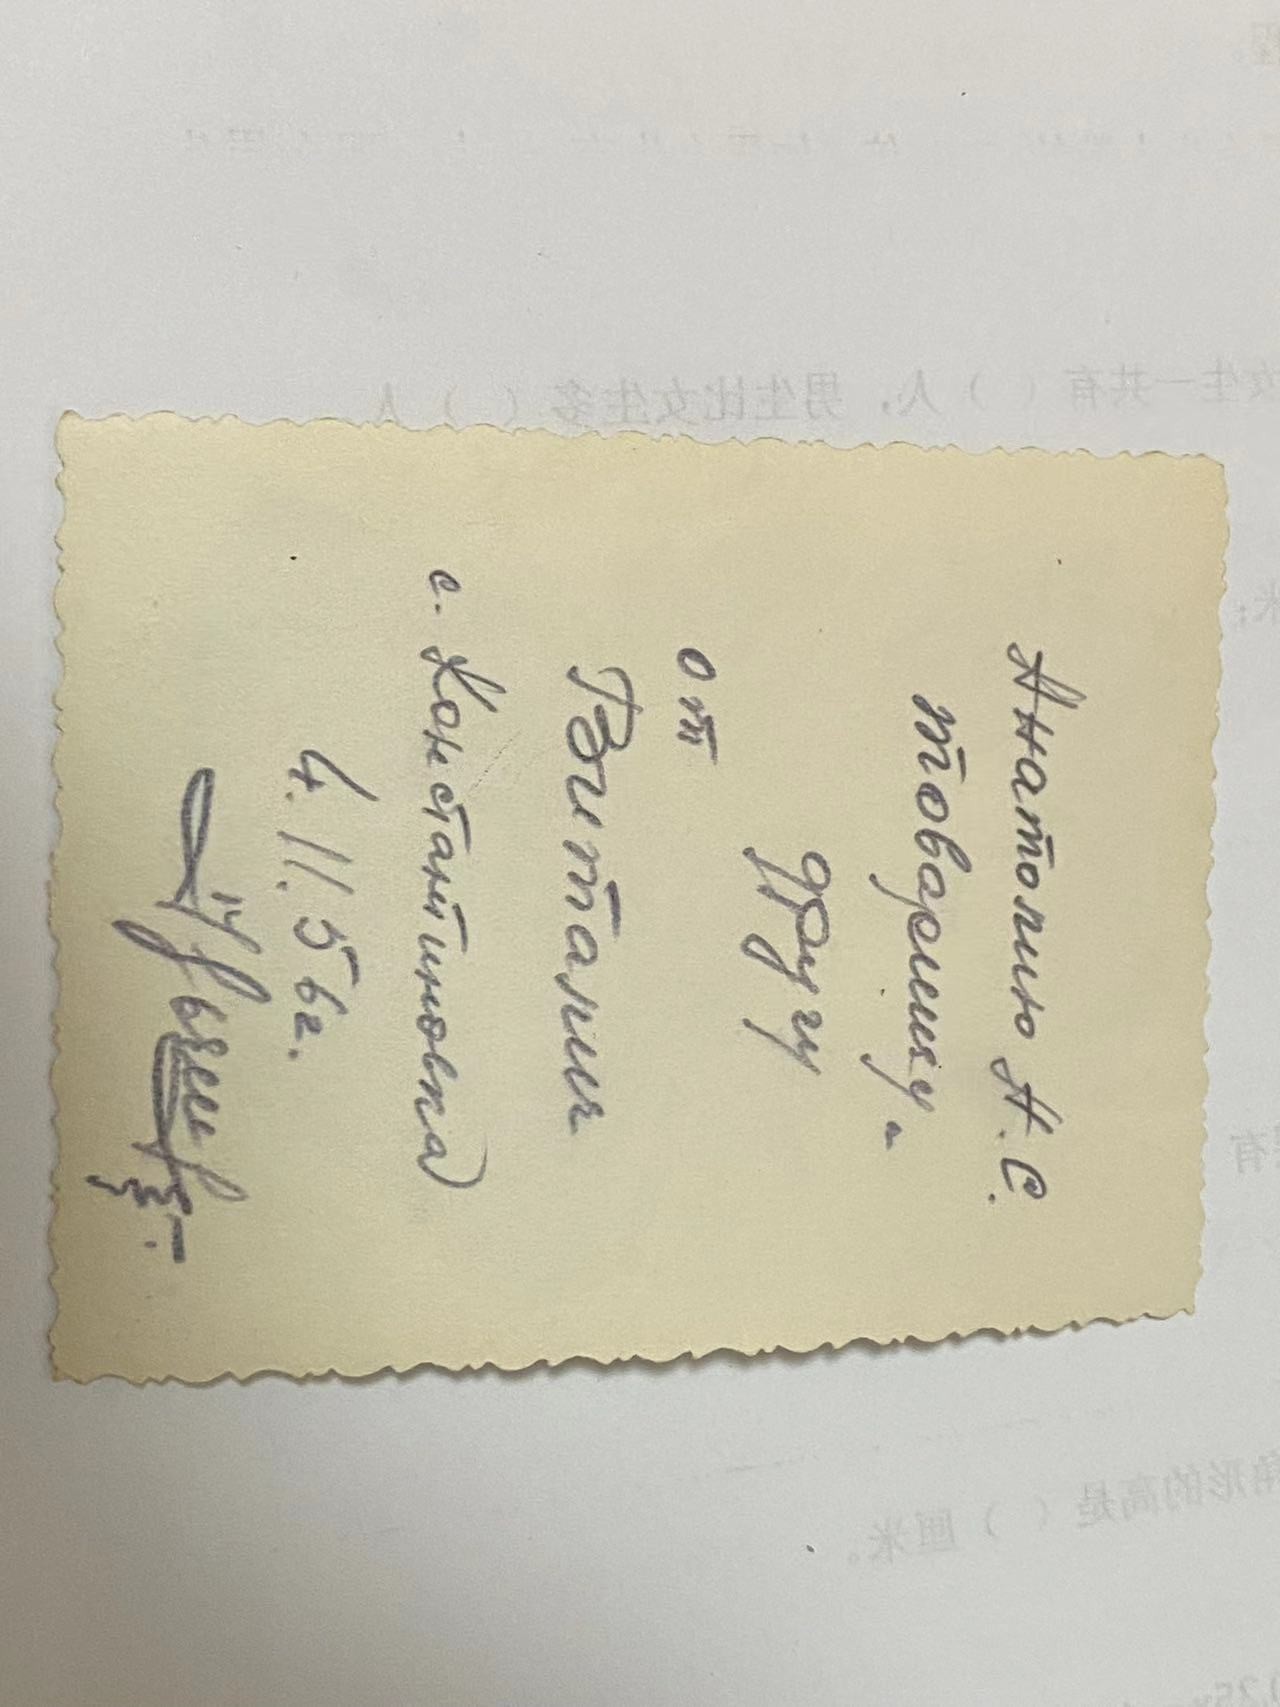 Анатолию Н. С.
товарищу и
другу
от
Виталия
с. Константиновка
4. 11. 56г.
女生一共有（ ）人，男生比女生多（ ）人
米；
有
角形的高是（ ）厘米。